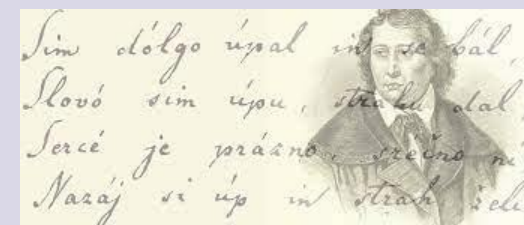 Sim dólgo úpal in se bál,
Slovó sim úpu, strahu dal,
Sercé je prázno, srečno ni
Nazáj si úp in strah želi